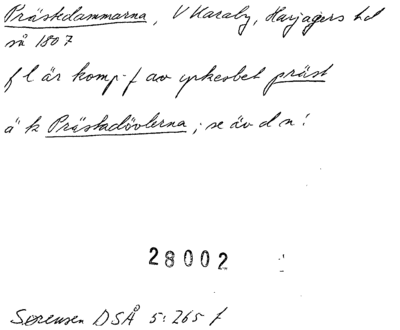 Präskdammarna, V Karaby, Harjagers hd
så 1807
f l är komp-f av yrkesbet präst
ä k Präskadövlerna; se äv d n!
28002
Sørensen DSÅ 5:265 f